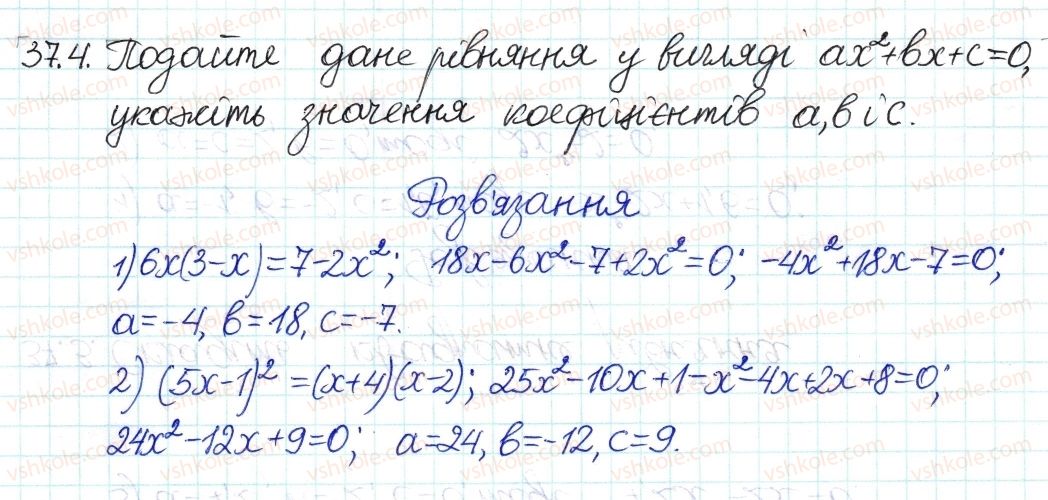 37.4. Подайте дане рівняння у вигляді ax²+bx+c=0,
укажіть значення коефіцієнтів a, b і c.
Розв'язання
1) 6x(3-x)=7-2x²; 18x-6x²-7+2x²=0; -4x²+18x-7=0;
a=-4, b=18, c=-7.
2) (5x-1)²=(x+4)(x-2); 25x²-10x+1-x²-4x+2x+8=0;
24x²-12x+9=0; a=24, b=-12, c=9.